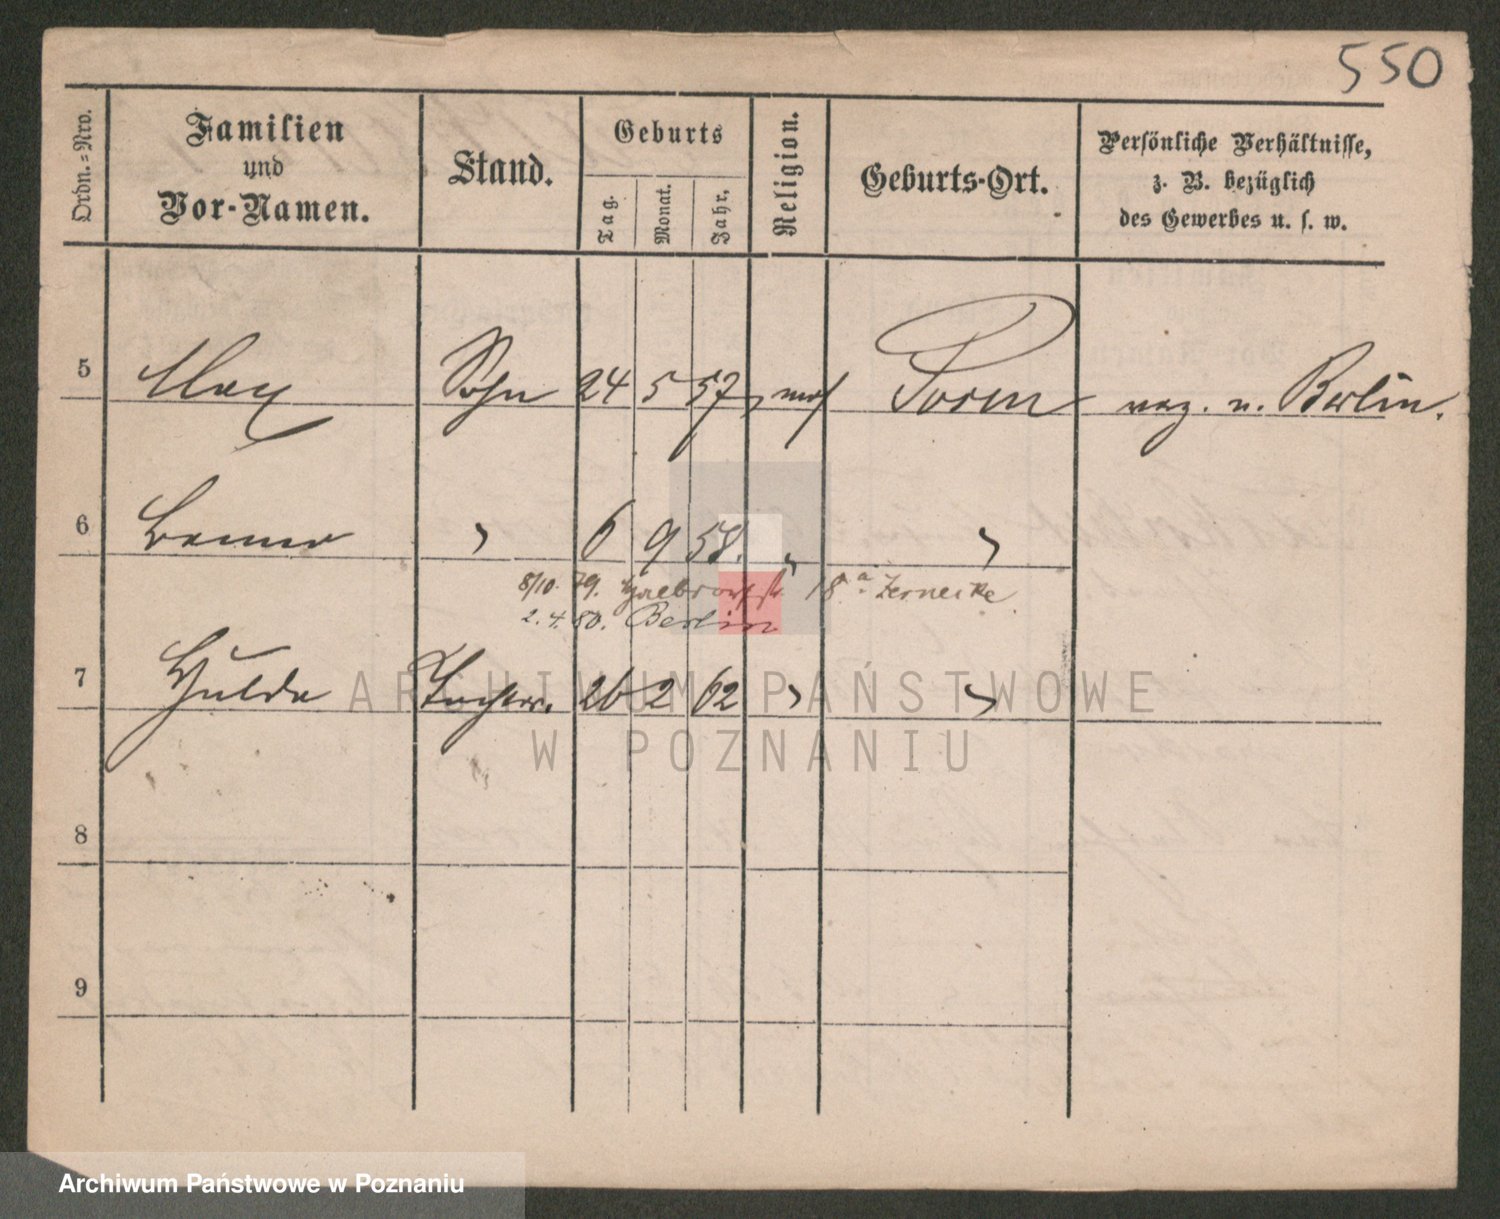 550
Ordn.=Nro.
Familien
und
Vor-Namen.
Stand.
Geburts
Tag.
Monat.
Jahr.
Religion.
Geburts-Ort.
Persönliche Verhältnisse,
z. B. bezüglich
des Gewerbes u. s. w.
5 Max Sohn 24 5 57 mos n. Berlin.
6 Benno " 6 9 58. " "
8/10. 79. 18a Zernecke
2.4.80. Berlin
7 Hulda Tochter. 26 2 62 " "
8
9
ARCHIWUM PAŃSTWOWE
W POZNANIU
Archiwum Państwowe w Poznaniu